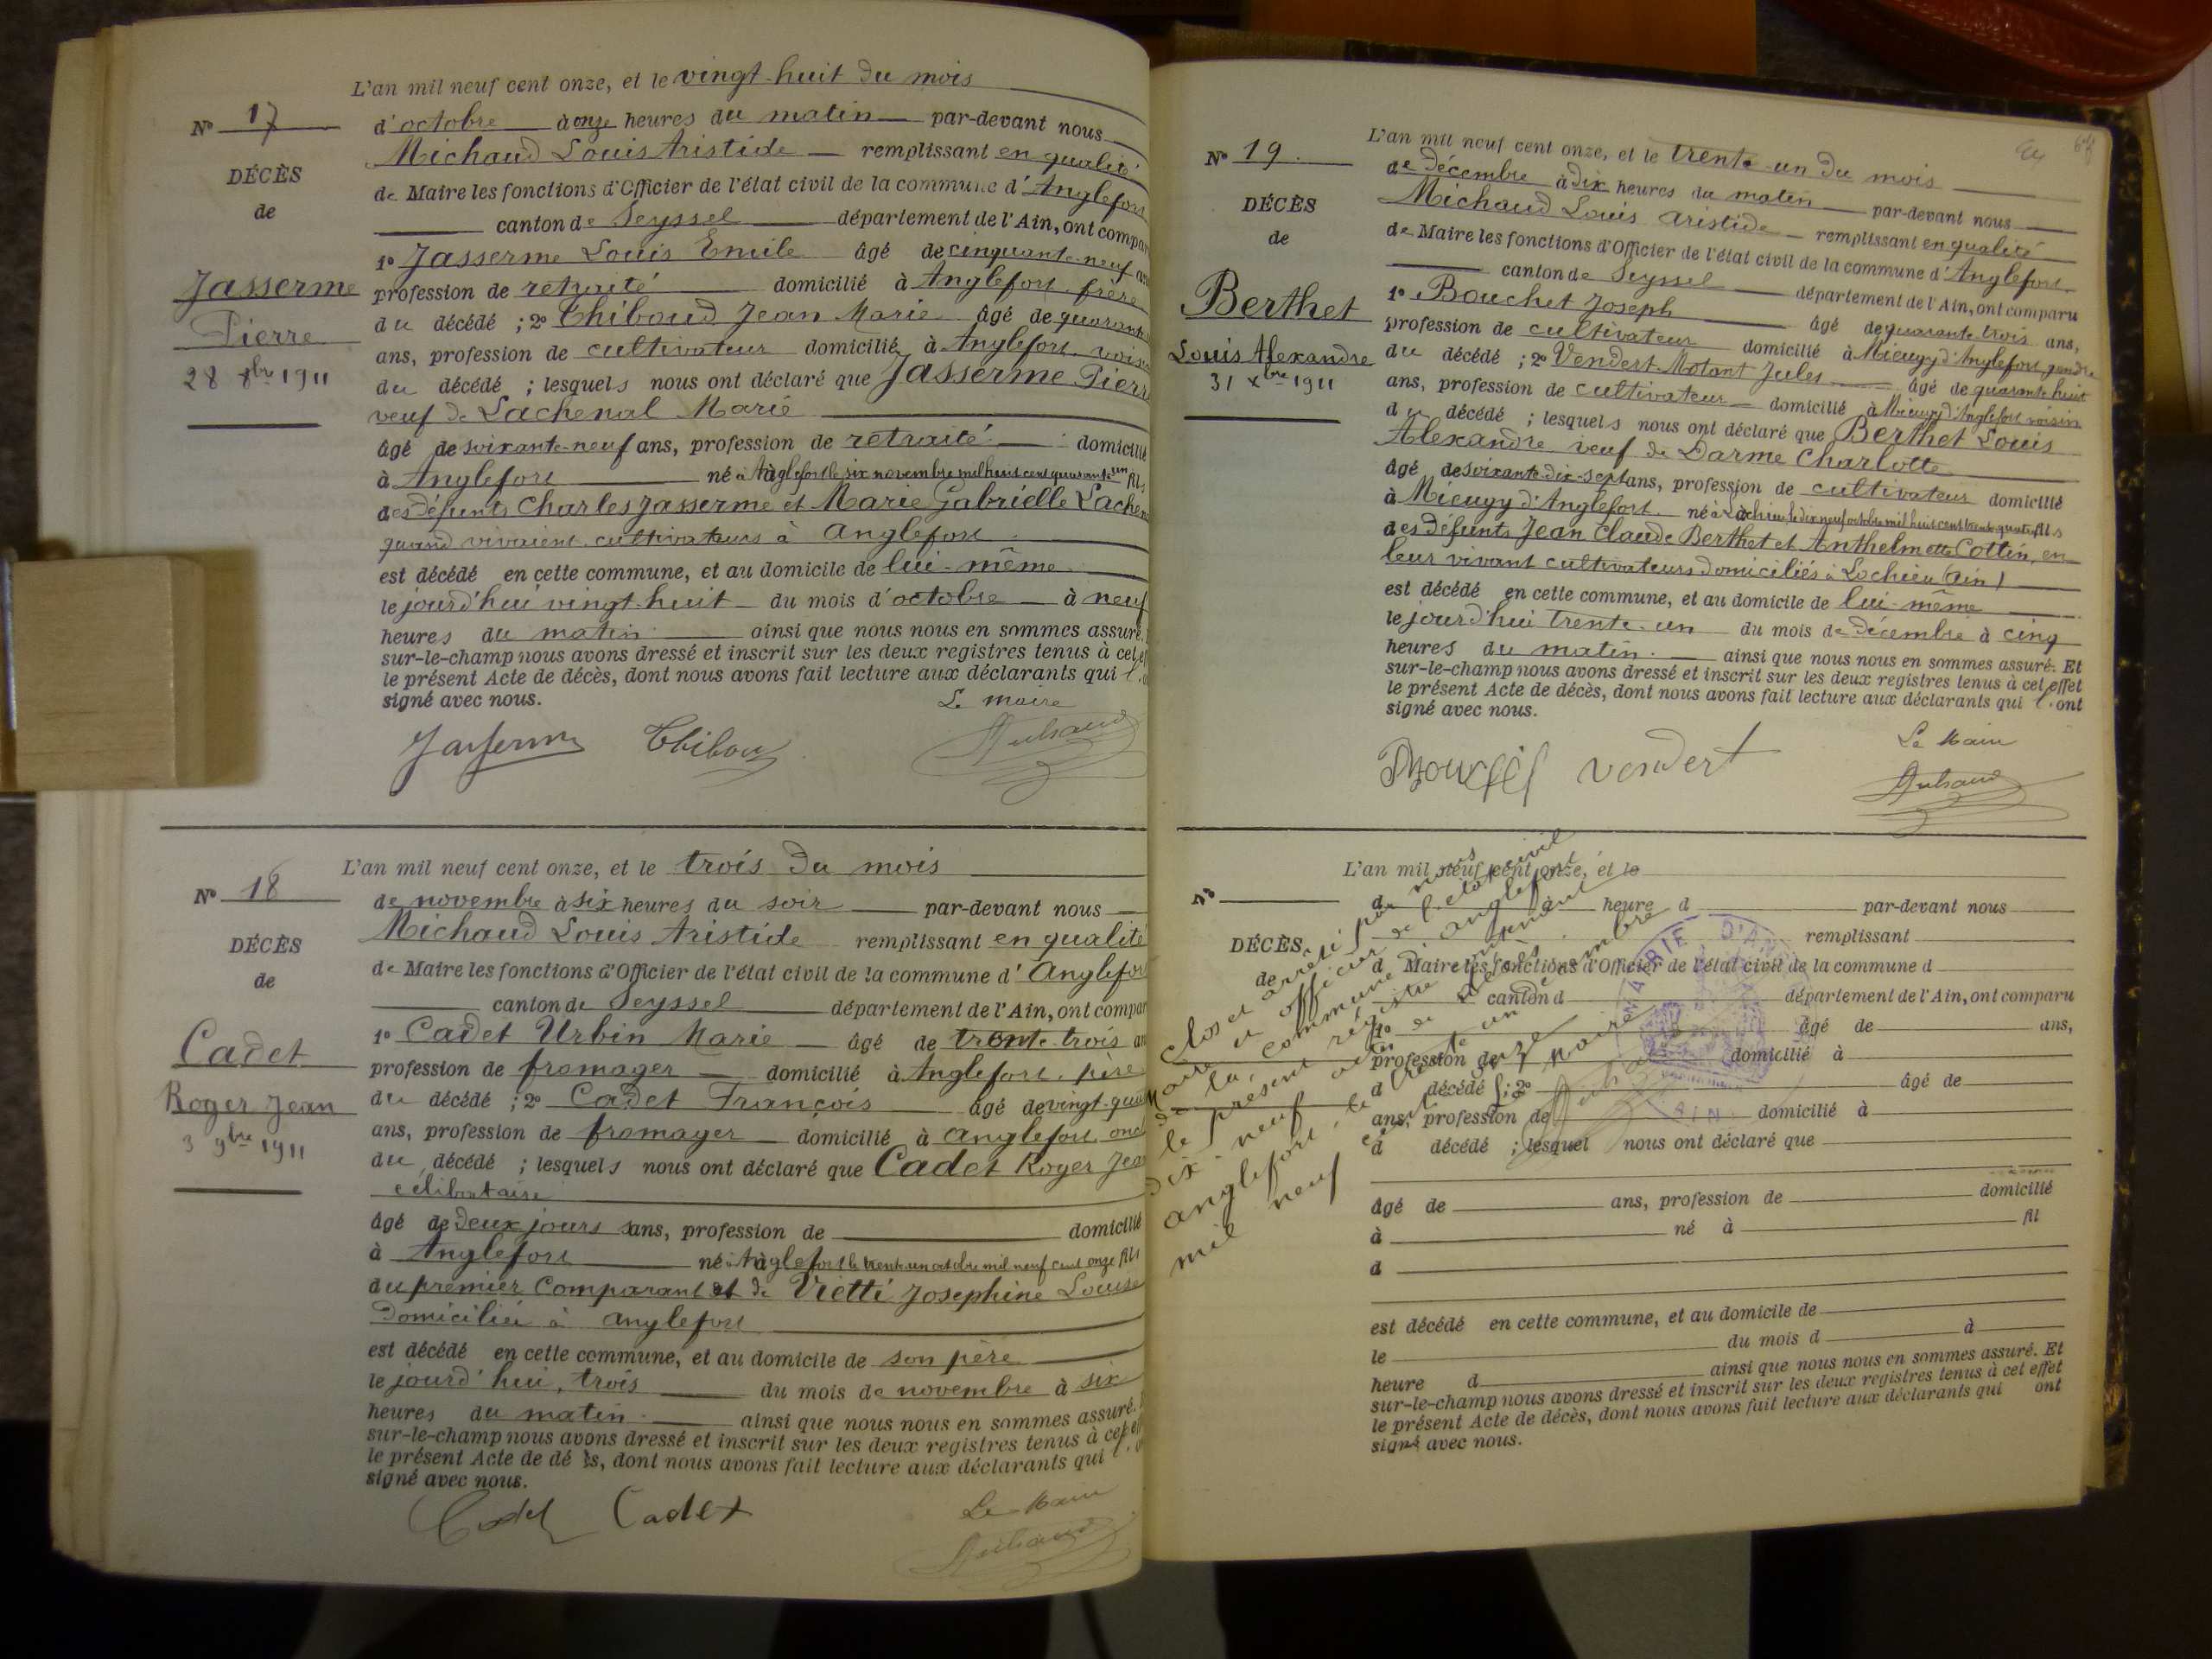 L'an mil neuf cent onze, et le vingt-huit du mois
N° 17
d'octobre à onze heures du matin par-devant nous
Michaud Louis Aristide remplissant en qualité
DÉCÈS
de Maire les fonctions d'Officier de l'état civil de la commune d'Anglefort
de
canton de Seyssel département de l'Ain, ont compar
1° Jasserme Louis Emile âgé de cinquante-neuf ans
Jasserme
profession de retraité domicilié à Anglefort frère
Pierre
du décédé ; 2° Thiboud Jean Marie âgé de quarante
28 8bre 1911
ans, profession de cultivateur domicilié à Anglefort voisin
du décédé ; lesquels nous ont déclaré que Jasserme Pierre
veuf de Lachenal Marie
âgé de soixante-neuf ans, profession de retraité domicilié
à Anglefort né à Anglefort le six novembre mil huit cent quarante un fils
des défunts Charles Jasserme et Marie Gabrielle Lachen
quand vivaient cultivateurs à Anglefort
est décédé en cette commune, et au domicile de lui-même
le jourd'hui vingt-huit du mois d'octobre à neuf
heures du matin ainsi que nous nous en sommes assuré.
sur-le-champ nous avons dressé et inscrit sur les deux registres tenus à cet eff
le présent Acte de décès, dont nous avons fait lecture aux déclarants qui l'
signé avec nous.
Le maire
Jasserme Thiboud Michaud
L'an mil neuf cent onze, et le trois du mois
N° 18
de novembre à six heures du soir par-devant nous
Michaud Louis Aristide remplissant en qualité
DÉCÈS
de Maire les fonctions d'Officier de l'état civil de la commune d'Anglefort
de
canton de Seyssel département de l'Ain, ont compar
1° Cadet Urbin Marie âgé de trente-trois an
Cadet
profession de fromager domicilié à Anglefort, père
Roger Jean
du décédé ; 2° Cadet François âgé de vingt-qua
3 9bre 1911
ans, profession de fromager domicilié à Anglefort oncl
du décédé ; lesquels nous ont déclaré que Cadet Roger Jean
célibataire
âgé de deux jours sans, profession de domicilié
à Anglefort né à Anglefort le trente-un octobre mil neuf cent onze fils
du premier Comparant et de Vietti Josephine Louise
Domiciliée à Anglefort
est décédé en cette commune, et au domicile de son père
le jourd'hui, trois du mois de novembre à six
heures du matin ainsi que nous nous en sommes assuré.
sur-le-champ nous avons dressé et inscrit sur les deux registres tenus à cet eff
le présent Acte de décès, dont nous avons fait lecture aux déclarants qui l'
signé avec nous.
Cadet Cadet
Le Maire
Michaud
L'an mil neuf cent onze, et le trente-un du mois
N° 19.
de décembre à dix heures du matin par-devant nous
Michaud Louis Aristide remplissant en qualité
DÉCÈS
de Maire les fonctions d'Officier de l'état civil de la commune d'Anglefort
de
canton de Seyssel département de l'Ain, ont comparu
1° Bouchet Joseph âgé de quarante trois ans,
Berthet
profession de cultivateur domicilié à Mieugy d'Anglefort gendre
Louis Alexandre
du décédé ; 2° Vendert-Motant Jules âgé de quarante huit
31 Xbre 1911
ans, profession de cultivateur domicilié à Mieugy d'Anglefort voisin
du décédé ; lesquels nous ont déclaré que Berthet Louis
Alexandre veuf de Darme Charlotte
âgé de soixante-dix-sept ans, profession de cultivateur domicilié
à Mieugy d'Anglefort né à Lochieu, le dix neuf octobre mil huit cent trente quatre, fils
des défunts Jean Claude Berthet et Anthelmette Cottin, en
leur vivant cultivateurs domiciliés à Lochieu (Ain)
est décédé en cette commune, et au domicile de lui-même
le jourd'hui trente-un du mois de décembre à cinq
heures du matin ainsi que nous nous en sommes assuré. Et
sur-le-champ nous avons dressé et inscrit sur les deux registres tenus à cet effet
le présent Acte de décès, dont nous avons fait lecture aux déclarants qui l'ont
signé avec nous.
Le Maire
Bouchet Vendert Michaud
L'an mil neuf cent onze, et le
N°
d à heure d par-devant nous
remplissant
DÉCÈS
d Maire les fonctions d'Officier de l'état civil de la commune d
de
canton d département de l'Ain, ont comparu
1° âgé de ans,
profession de domicilié à
d décédé ; 2° âgé de
ans, profession de domicilié à
d décédé ; lesquel nous ont déclaré que
âgé de ans, profession de domicilié
à né à fil
d
est décédé en cette commune, et au domicile de
le du mois d à
heure d ainsi que nous nous en sommes assuré. Et
sur-le-champ nous avons dressé et inscrit sur les deux registres tenus à cet effet
le présent Acte de décès, dont nous avons fait lecture aux déclarants qui ont
signé avec nous.
Clos et arrêté par nous
Maire et officier de l'état civil
de la commune d'Anglefort
le présent registre comprenant
dix-neuf actes de décès
Anglefort, le trente un décembre
mil neuf cent onze
Le Maire
Michaud
MAIRIE D'AN
AIN